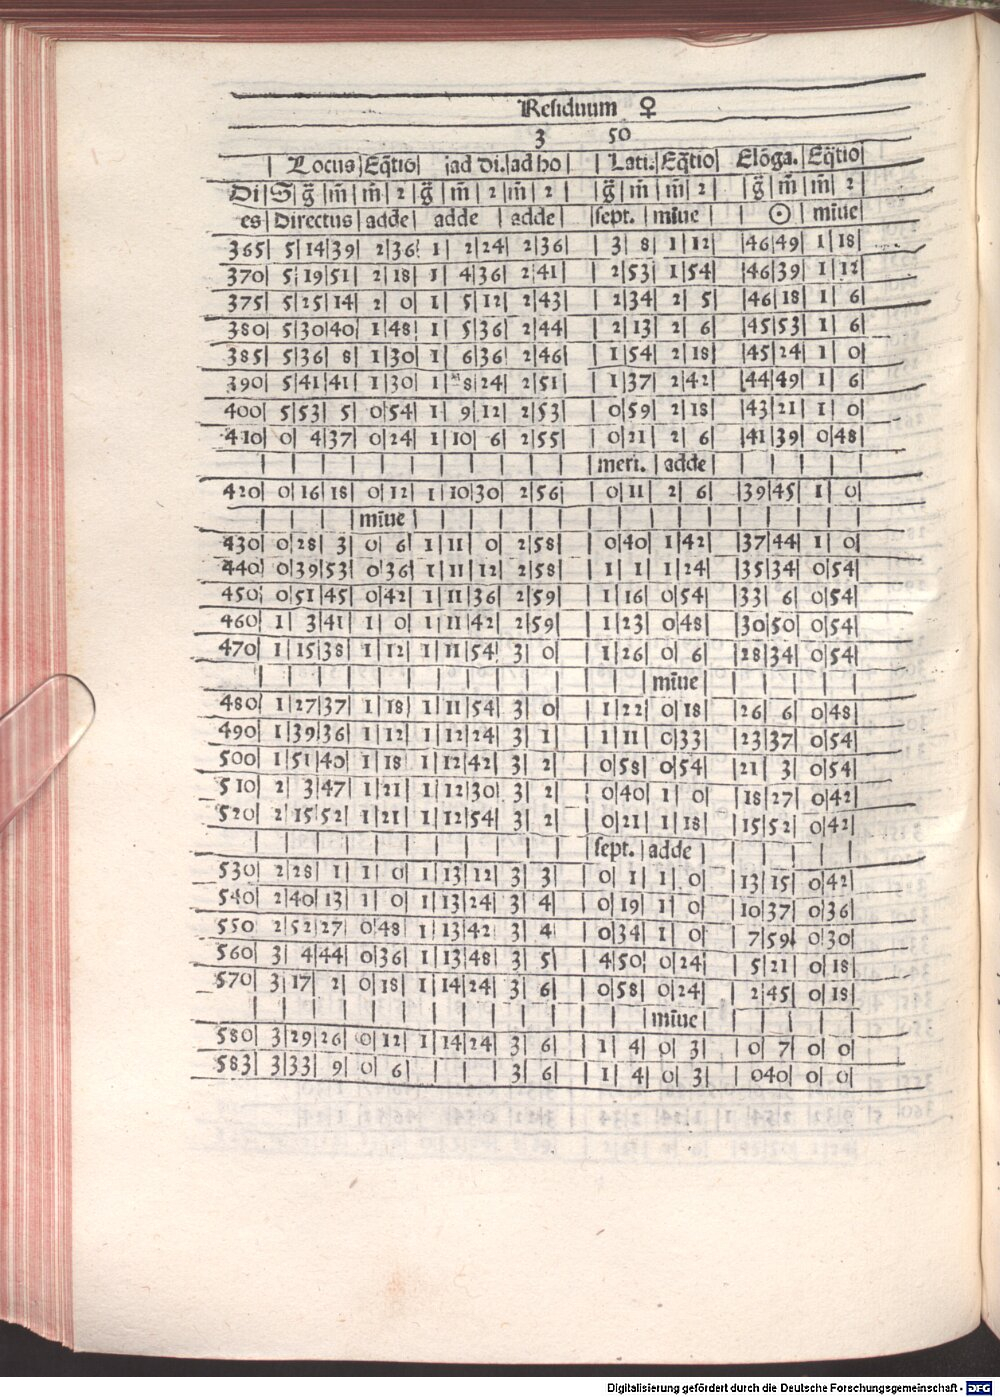 Residuum ♀
3 50
| Locus | Eq̃tio | ad Di. | ad ho | Lati: | Eq̃tio | Elõga. | Eq̃tio |
Di | S | g̃ | m̃ | m̃ | 2 | g̃ | m̃ | 2 | m̃ | 2 | g̃ | m̃ | m̃ | 2 | g̃ | m̃ | m̃ | 2
es | Directus | adde | adde | adde | sept. | mĩue | ☉ | mĩue
365 | 5 | 14 | 39 | 2 | 36 | 1 | 2 | 24 | 2 | 36 | 3 | 8 | 1 | 12 | 46 | 49 | 1 | 18
370 | 5 | 19 | 51 | 2 | 18 | 1 | 4 | 36 | 2 | 41 | 2 | 53 | 1 | 54 | 46 | 39 | 1 | 12
375 | 5 | 25 | 14 | 2 | 0 | 1 | 5 | 12 | 2 | 43 | 2 | 34 | 2 | 5 | 46 | 18 | 1 | 6
380 | 5 | 30 | 40 | 1 | 48 | 1 | 5 | 36 | 2 | 44 | 2 | 13 | 2 | 6 | 45 | 53 | 1 | 6
385 | 5 | 36 | 8 | 1 | 30 | 1 | 6 | 36 | 2 | 46 | 1 | 54 | 2 | 18 | 45 | 24 | 1 | 0
390 | 5 | 41 | 41 | 1 | 30 | 1 | 8 | 24 | 2 | 51 | 1 | 37 | 2 | 42 | 44 | 49 | 1 | 6
400 | 5 | 53 | 5 | 0 | 54 | 1 | 9 | 12 | 2 | 53 | 0 | 59 | 2 | 18 | 43 | 21 | 1 | 0
410 | 0 | 4 | 37 | 0 | 24 | 1 | 10 | 6 | 2 | 55 | 0 | 21 | 2 | 6 | 41 | 39 | 0 | 48
meri. | adde
420 | 0 | 16 | 18 | 0 | 12 | 1 | 10 | 30 | 2 | 56 | 0 | 11 | 2 | 6 | 39 | 45 | 1 | 0
mĩue
430 | 0 | 28 | 3 | 0 | 6 | 1 | 11 | 0 | 2 | 58 | 0 | 40 | 1 | 42 | 37 | 44 | 1 | 0
440 | 0 | 39 | 53 | 0 | 36 | 1 | 11 | 12 | 2 | 58 | 1 | 1 | 1 | 24 | 35 | 34 | 0 | 54
450 | 0 | 51 | 45 | 0 | 42 | 1 | 11 | 36 | 2 | 59 | 1 | 16 | 0 | 54 | 33 | 6 | 0 | 54
460 | 1 | 3 | 41 | 1 | 0 | 1 | 11 | 42 | 2 | 59 | 1 | 23 | 0 | 48 | 30 | 50 | 0 | 54
470 | 1 | 15 | 38 | 1 | 12 | 1 | 11 | 54 | 3 | 0 | 1 | 26 | 0 | 6 | 28 | 34 | 0 | 54
mĩue
480 | 1 | 27 | 37 | 1 | 18 | 1 | 11 | 54 | 3 | 0 | 1 | 22 | 0 | 18 | 26 | 6 | 0 | 48
490 | 1 | 39 | 36 | 1 | 12 | 1 | 12 | 24 | 3 | 1 | 1 | 11 | 0 | 33 | 23 | 37 | 0 | 54
500 | 1 | 51 | 40 | 1 | 18 | 1 | 12 | 42 | 3 | 2 | 0 | 58 | 0 | 54 | 21 | 3 | 0 | 54
510 | 2 | 3 | 47 | 1 | 21 | 1 | 12 | 30 | 3 | 2 | 0 | 40 | 1 | 0 | 18 | 27 | 0 | 42
520 | 2 | 15 | 52 | 1 | 21 | 1 | 12 | 54 | 3 | 2 | 0 | 21 | 1 | 18 | 15 | 52 | 0 | 42
sept. | adde
530 | 2 | 28 | 1 | 1 | 0 | 1 | 13 | 12 | 3 | 3 | 0 | 1 | 1 | 0 | 13 | 15 | 0 | 42
540 | 2 | 40 | 13 | 1 | 0 | 1 | 13 | 24 | 3 | 4 | 0 | 19 | 1 | 0 | 10 | 37 | 0 | 36
550 | 2 | 52 | 27 | 0 | 48 | 1 | 13 | 42 | 3 | 4 | 0 | 34 | 1 | 0 | 7 | 59 | 0 | 30
560 | 3 | 4 | 44 | 0 | 36 | 1 | 13 | 48 | 3 | 5 | 4 | 50 | 0 | 24 | 5 | 21 | 0 | 18
570 | 3 | 17 | 2 | 0 | 18 | 1 | 14 | 24 | 3 | 6 | 0 | 58 | 0 | 24 | 2 | 45 | 0 | 18
mĩue
580 | 3 | 29 | 26 | 0 | 12 | 1 | 14 | 24 | 3 | 6 | 1 | 4 | 0 | 3 | 0 | 7 | 0 | 0
583 | 3 | 33 | 9 | 0 | 6 | | | | 3 | 6 | 1 | 4 | 0 | 3 | 040 | 0 | 0
Digitalisierung gefördert durch die Deutsche Forschungsgemeinschaft - DFG